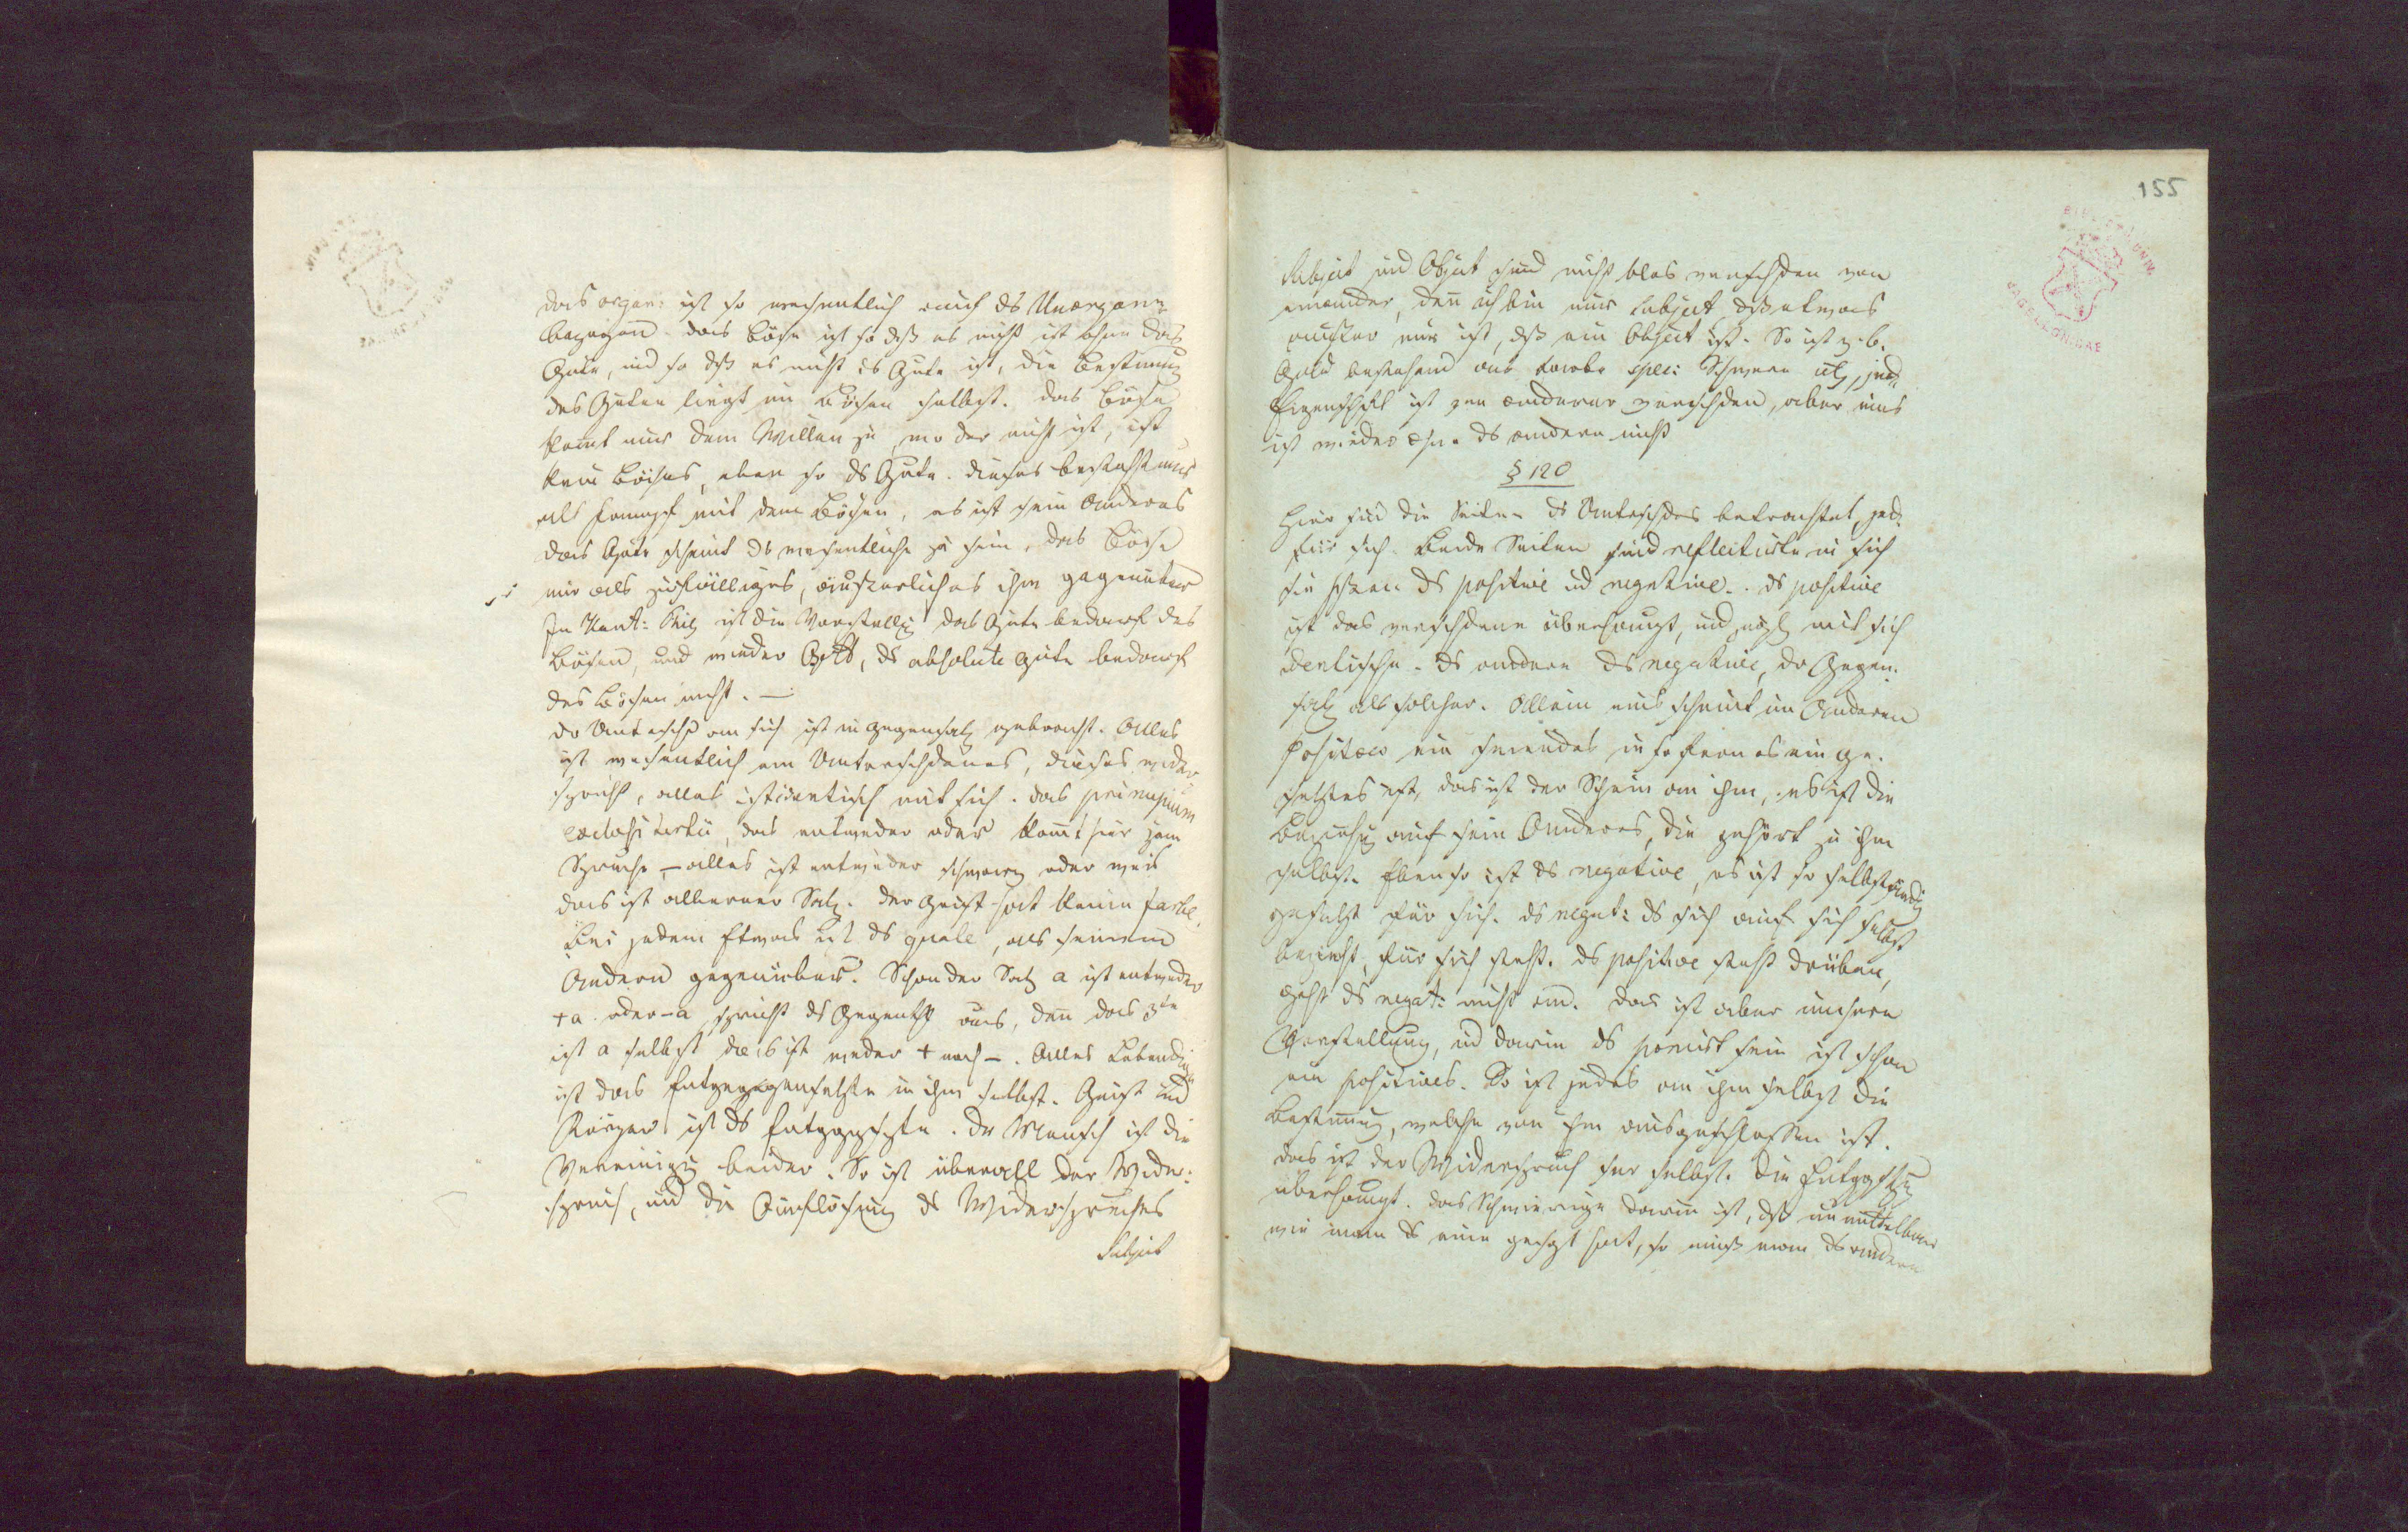 das organ: ist so wesentlich auch ds Unorgani
bezogen. das Böse ist so dß es nicht ist ohne das
Gute, und so dß es nicht ds Gute ist, die Bestimung
des Guten liegt im Bösen selbst. das Böse
komt nur dem Willen zu, wo der nicht ist, ist
kein Böses, eben so ds Gute. dieses besteht nur
als Kampf mit dem Bösen, es ist sein Anderes
das Gute scheint ds wesentliche zu sein, das Böse
nur als zufälliges, äußerliches ihm gegenüber
In Kant: ist die Vorstellg das Gute bedarf des
Bösen, und wieder Gott, ds absolute Gute bedarf
des Bösen nicht. —
dr Untersch an sich ist in Gegensatz gebracht. Alles
ist wesentlich ein Unterschdenes, dieses wider
spricht, alles ist identisch mit sich. das principium
exclusi tertii, das entweder oder kommt hier zum
Spruche, – alles ist entweder schwarz oder weis
das ist alberner Satz. der Geist hat keine Farbe.
Bei jedem Etwas ist ds quale, als seinem
Andern gegenüber. Schon der Satz a ist entweder
+a oder –a spricht ds Gegenthl aus, denn das 3te
ist a selbst das ist weder + noch –. Alles Lebendige
ist das Entgegengesetzte in ihm selbst. Geist und
Körper ist ds Entggsetzte. Der Mensch ist die
Vereinigg beider. So ist überall der Wider-
spruch, und die Auflösung ds Widerspruches
Subject
155
Subject und Object sind nicht blos verschden von
einander, denn ich bin nur Subject, dß etwas
außer mir ist, dß ein Object ist. So ist z.b.
Gold bestehend aus Farbe spec: Schwere etc, jede
Eigenschft ist von anderer verschden, aber eins
ist wieder ohne ds andere nicht
§ 120
Hier sind die Seiten ds Unterschdes betrachtet, jede
für sich. Beide Seiten sind reflectirte in sich
sie ds positive ud negative. ds positive
ist das verschdene überhaupt, und zugl mit sich
identische. ds andere ds negative, dr Gegen-
satz als solcher. Allein eins scheint im Anderen
Positiv ein seiendes in so fern es ein ge-
setztes ist, das ist der Schein an ihm, es ist die
Beziehg auf sein Anderes, die gehört zu ihm
selbst. Eben so ist ds negative, es ist so selbständig
gesetzt für sich. ds negat: ds sich auf sich selbst
bezieht, für sich steht. ds positive steht drüben,
geht ds negat: nicht an. Das ist aber unsere
Vorstellung, ud darin ds ponirt sein ist schon
ein positives. So ist jedes an ihm selbst die
Bestimung, welche von ihm ausgeschlossen ist.
das ist der Widerspruch selbst. Die Entggsetzg
überhaupt. das Schwierige darin ist, dß unmittelbar
wie man ds eine gesagt hat, so muß man ds andere